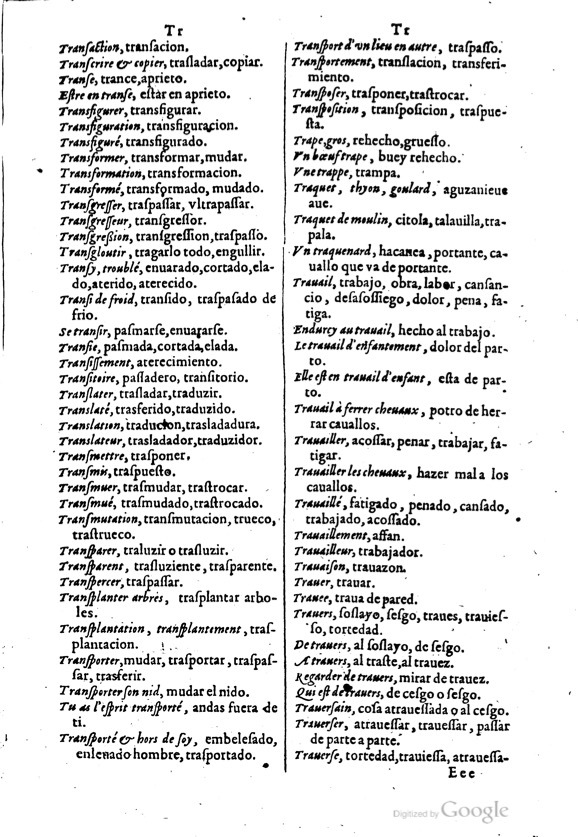 Tr
Transaction, transacion.
Transcrire & copier, trasladar, copiar.
Transe, trance, aprieto.
Estre en transe, estar en aprieto.
Transfigurer, transfigurar.
Transfiguration, transfiguracion.
Transfiguré, transfigurado.
Transformer, transformar, mudar.
Transformation, transformacion.
Transformé, transformado, mudado.
Transgresser, traspassar, vltrapassar.
Transgresseur, transgressor.
Transgreßion, transgression, traspasso.
Transgloutir, tragarlo todo, engullir.
Transy, troublé, enuarado, cortado, ela-
do, aterido, aterecido.
Transi de froid, transido, traspasado de
frio.
Se transir, pasmarse, enuararse.
Transie, pasmada, cortada, elada.
Transissement, aterecimiento.
Transitoire, pasladero, transitorio.
Translater, trasladar, traduzir.
Translaté, trasferido, traduzido.
Translation, traducion, trasladadura.
Translateur, trasladador, traduzidor.
Transmettre, trasponer.
Transmis, traspuesto.
Transmuer, trasmudar, trastrocar.
Transmué, trasmudado, trastrocado.
Transmutation, transmutacion, trueco,
trastrueco.
Transparer, traluzir o trasluzir.
Transparent, trasluziente, trasparente.
Transpercer, traspassar.
Transplanter arbres, trasplantar arbo-
les.
Transplantation, transplantement, tras-
plantacion.
Transporter, mudar, trasportar, traspas-
sar, trasferir.
Transporter son nid, mudar el nido.
Tu as l'esprit transporté, andas fuera de
ti.
Transporté & hors de soy, embelesado,
enlenado hombre, trasportado.
Tr
Transport d'vn lieu en autre, traspasso.
Transportement, translacion, transferi-
miento.
Transposer, trasponer, trastrocar.
Transposition, transposicion, traspue-
sta.
Trape, gros, rehecho, gruesso.
Vn bœuf trape, buey rehecho.
Vne trappe, trampa.
Traquet, thyon, goulard, aguzanieue
aue.
Traquet de moulin, citola, talauilla, tra-
pala.
Vn traquenard, hacanea, portante, ca-
uallo que va de portante.
Trauail, trabajo, obra, labor, cansan-
cio, desassossiego, dolor, pena, fa-
tiga.
Endurcy au trauail, hecho al trabajo.
Le trauail d'enfantement, dolor del par-
to.
Elle est en trauail d'enfant, esta de par-
to.
Trauail à ferrer cheuaux, potro de her-
rar cauallos.
Trauailler, acossar, penar, trabajar, fa-
tigar.
Trauailler les cheuaux, hazer mal a los
cauallos.
Trauaillé, fatigado, penado, cansado,
trabajado, acossado.
Trauaillement, affan.
Trauailleur, trabajador.
Trauaison, trauazon.
Trauer, trauar.
Trauee, traua de pared.
Trauers, soslayo, sesgo, traues, trauies-
so, tortedad.
De trauers, al soslayo, de sesgo.
A trauers, al traste, al trauez.
Regarder de trauers, mirar de trauez.
Qui est de trauers, de cesgo o sesgo.
Trauersain, cosa atrauessada o al cesgo.
Trauerser, atrauessar, trauessar, passar
de parte a parte.
Trauerse, tortedad, trauiessa, atrauessa-
Eee
Digitized by Google